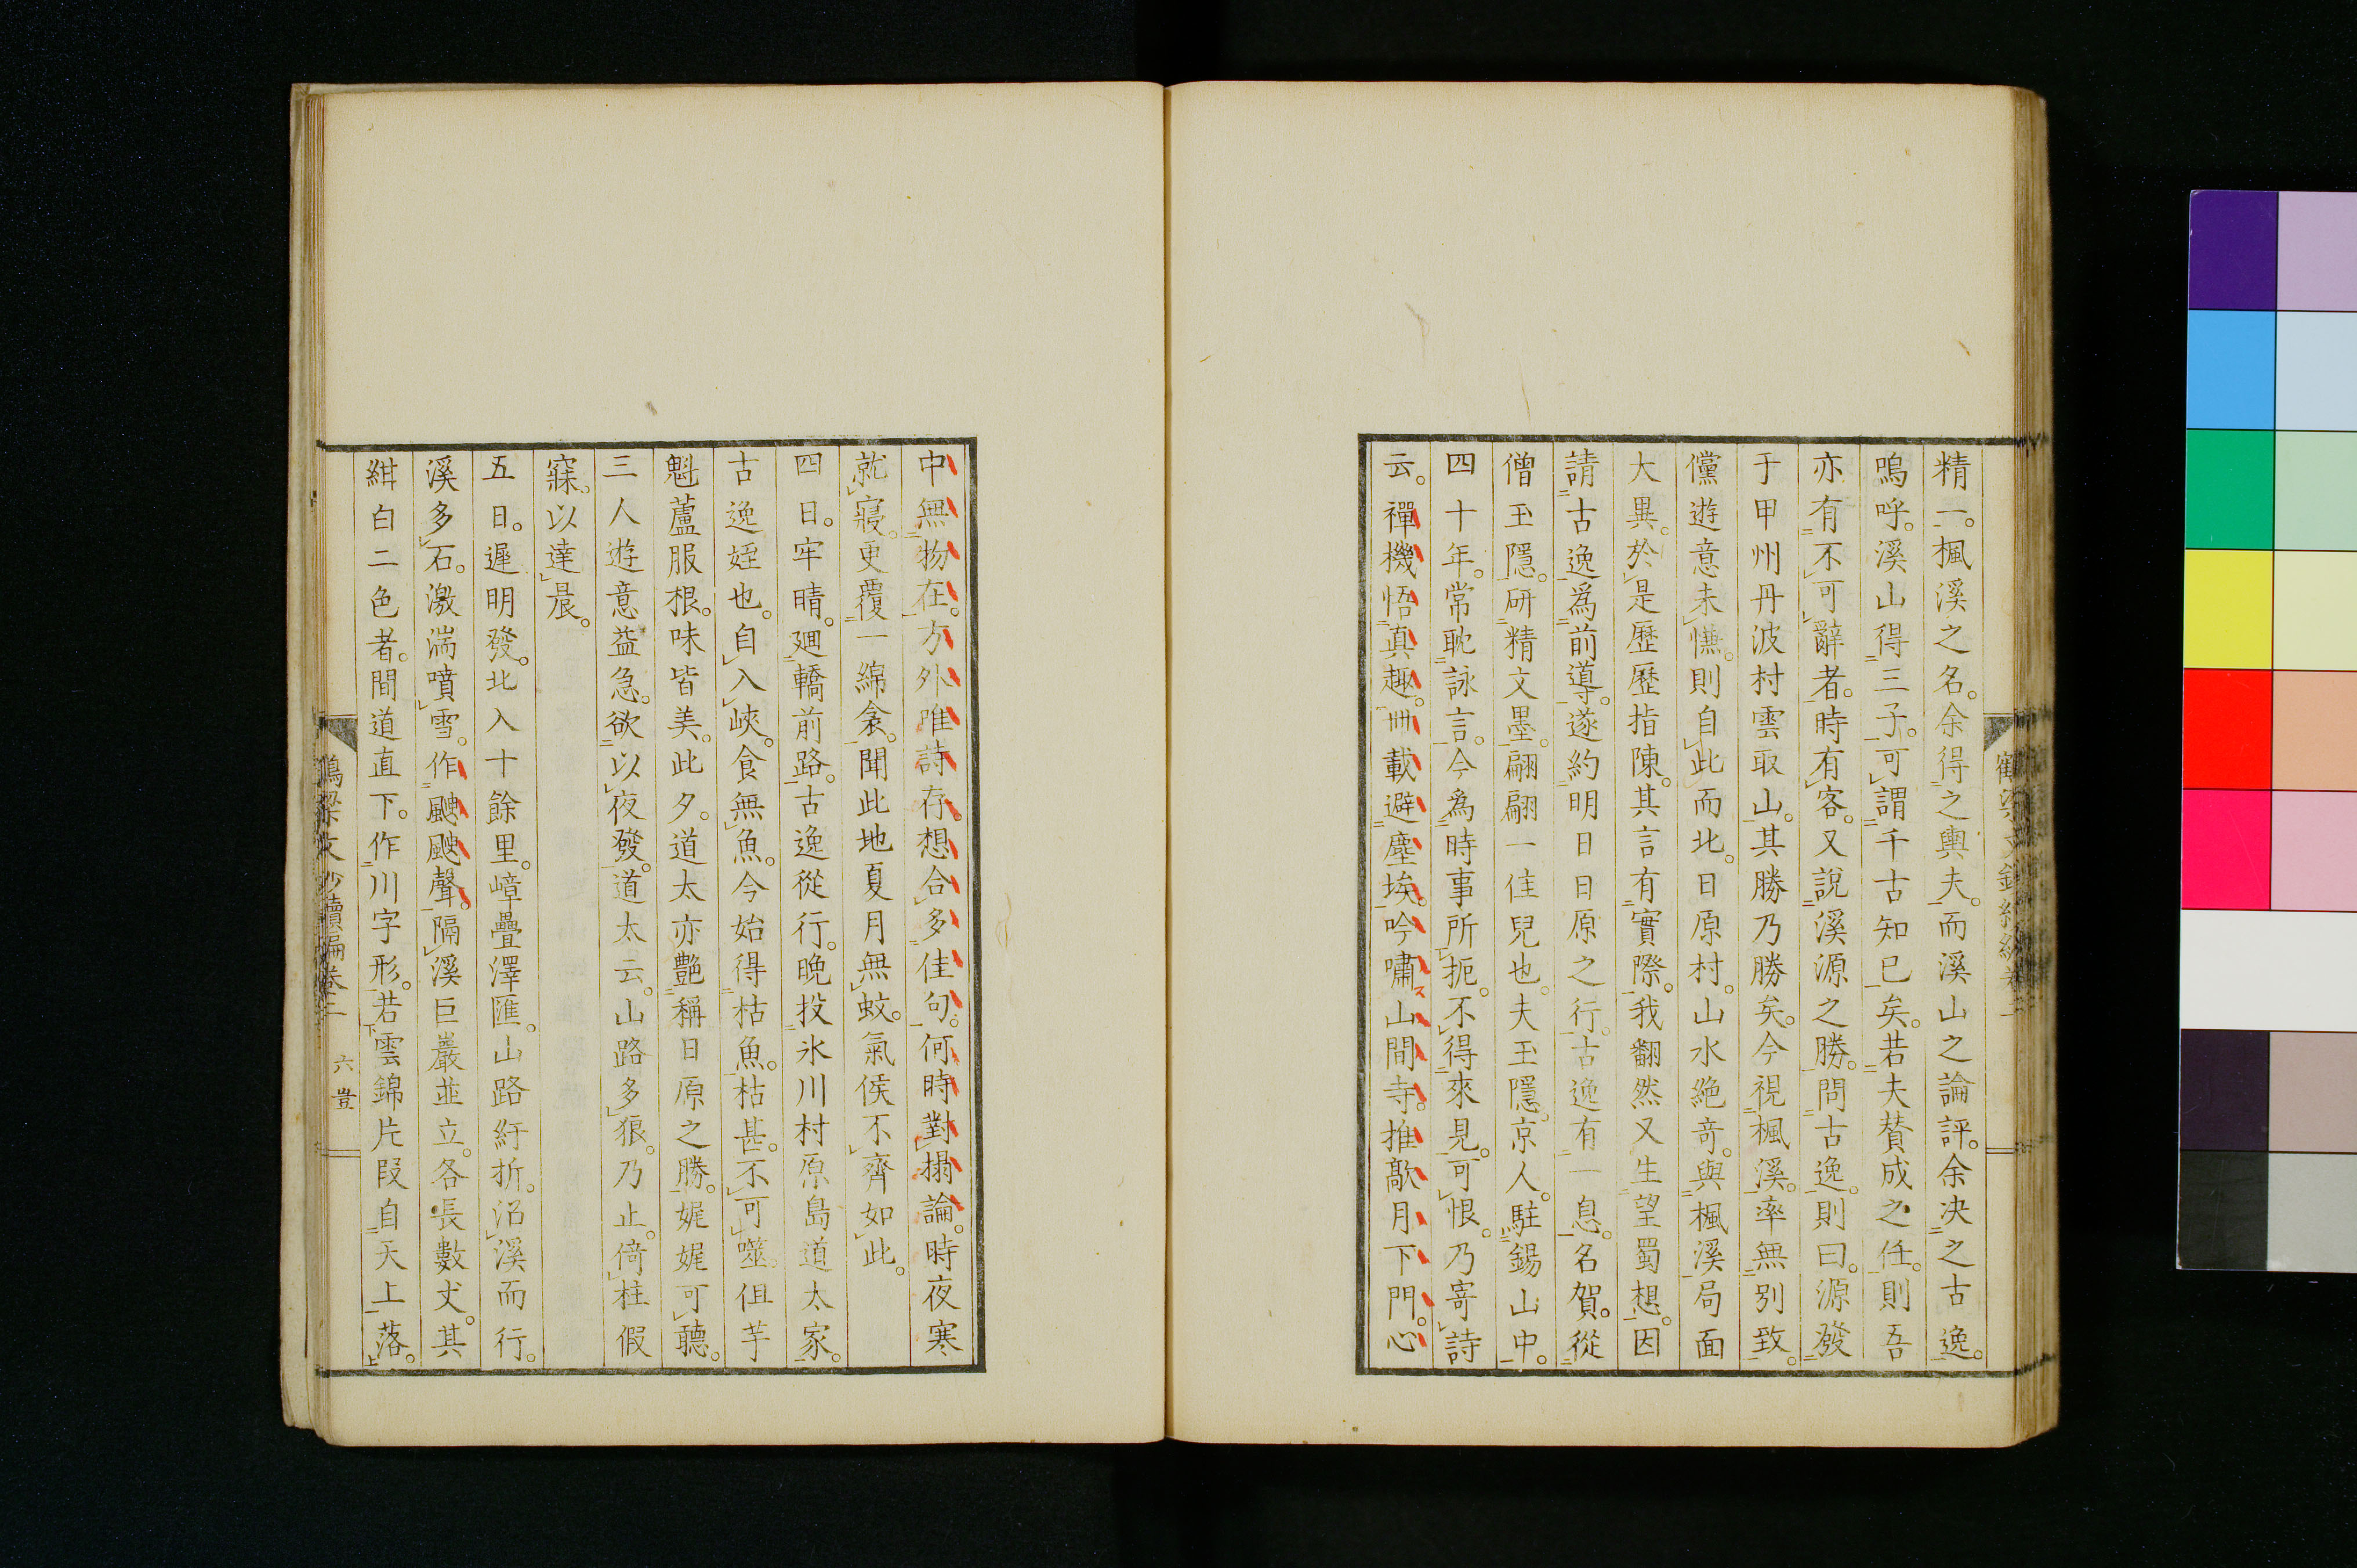 精一。楓溪之名。余得之輿夫。而溪山之論評。余决之古逸。
嗚呼。溪山得三子。可謂千古知已矣。若夫賛成之任。則吾
亦有不可辭者。時有客。又說溪源之勝。問古逸。則曰。源發
于甲州丹波村雲取山。其勝乃勝矣。今視楓溪。率無別致。
儻遊意未慊。則自此而北。日原村。山水絶奇。與楓溪局面
大異。於是歷歷指陳。其言有實際。我翻然又生望蜀想。因
請古逸爲前導。遂約明日日原之行。古逸有一息。名賀。從
僧玉隱。研精文墨。翩翩一佳兒也。夫玉隱。京人。駐錫山中。
四十年。常耽詠言。今爲時事所扼。不得來見。可恨。乃寄詩
云。禪機悟真趣。卌載避塵埃。吟嘯山間寺。推敲月下門。心
中無物在。方外唯詩存。想合多佳句。何時對榻論。時夜寒
就寢。更覆一綿衾。聞此地夏月無蚊。氣候不齊如此。
四日。牢晴。廻轎前路。古逸從行。晚投氷川村原島道太家。
古逸姪也。自入峽。食無魚。今始得枯魚。枯甚。不可噬。但芋
魁蘆服根。味皆美。此夕。道太亦艶稱日原之勝。娓娓可聽。
三人遊意益急。欲以夜發。道太云。山路多狼。乃止。倚柱假
寐。以達晨。
五日。遲明發。北入十餘里。嶂疊澤匯。山路紆折。沿溪而行。
溪多石。激湍噴雪。作颼颼聲。隔溪巨巖並立。各長數丈。其
紺白二色者。間道直下。作川字形。若雲錦片段自天上落。
鶴梁文鈔續編卷二 六 豈